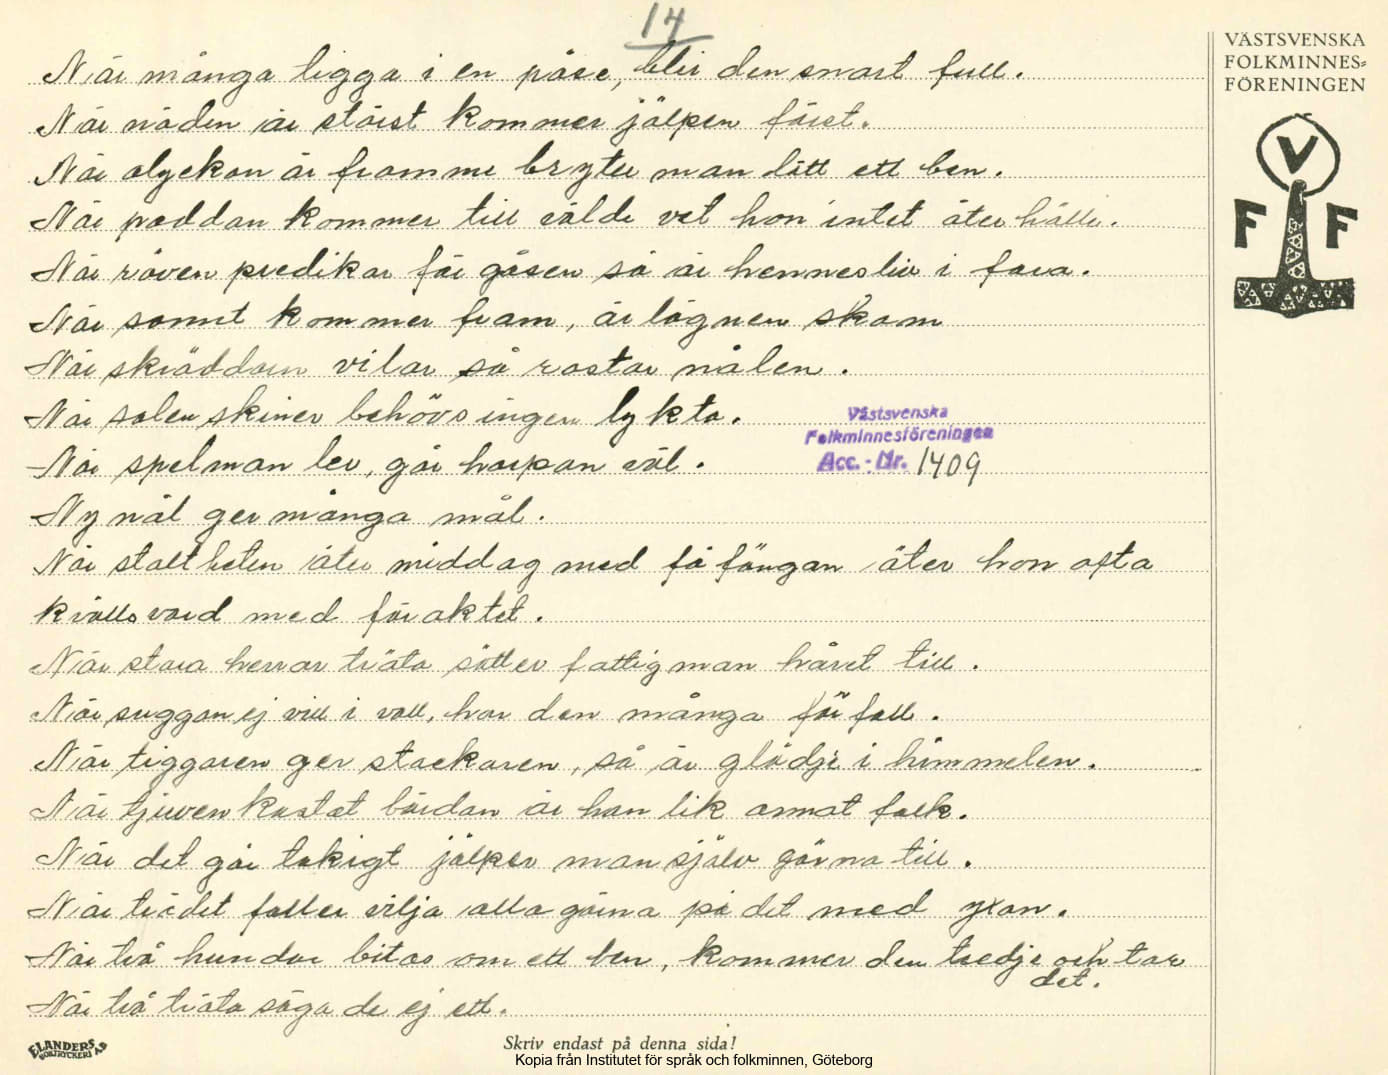 14
När många ligga i en påse, blir den snart full.
När nöden är störst kommer jälpen först.
När olyckan är framme bryter man lätt ett ben.
När paddan kommer till välde vet hon intet åter hålle.
När räven predikar för gåsen så är hennes liv i fara.
När sannt kommer fram, är lögnen skam
När skräddarn vilar så rostar nålen.
När solen skiner behövs ingen lykta.
När spelman ler, går harpan väl.
Ny nål ger många mål.
När stoltheten äter middag med fåfängan äter hon ofta
kvällsvard med föraktet.
När stora herrar träta sätter fattigman håret till.
När suggan ej vill i vall, har den många förfall.
När tiggaren ger stackaren, så är glädje i himmelen.
När tjuven kastat bördan är han lik annat folk.
När det går tokigt jälper man själv gärna till.
När trädet faller vilja alla gärna på det med yxan.
När två hundar bitas om ett ben, kommer den tredje och tar
det.
När två träta säga de ej ett.
Västsvenska
Folkminnesföreningen
Acc.-Nr. 1409
VÄSTSVENSKA
FOLKMINNES-
FÖRENINGEN
V
F F
ELANDERS
BOKTRYCKERI AB
Skriv endast på denna sida!
Kopia från Institutet för språk och folkminnen, Göteborg